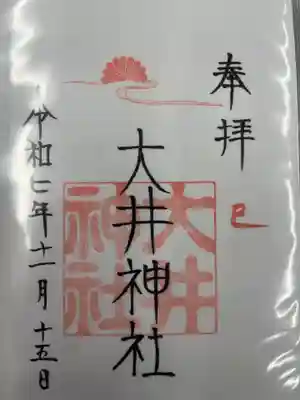 奉拝
巳
大井神社
大井
神社
令和七年十一月十五日